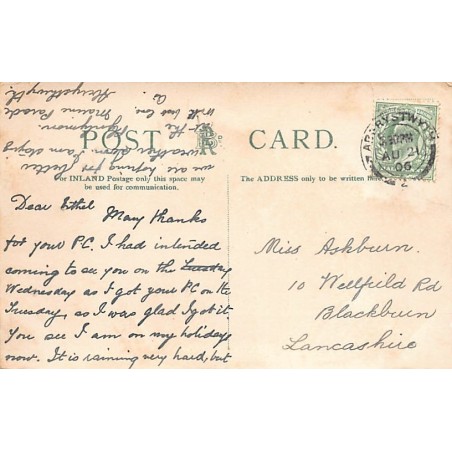 POST CARD.
For INLAND Postage only this space may
be used for communication.
The ADDRESS only to be written
ABERYSTWYTH
AU 21
06
Dear Ethel Many thanks
for your P.C. I had intended
coming to see you on the Tuesday
Wednesday as I got your PC on the
Tuesday, as I was glad I got it
You see I am on my holidays
now. It is raining very hard, but
we are hoping for better
weather soon. I am staying
at the
with love from
Marine Parade
Aberystwyth.
Miss Ashburn.
10 Wellfield Rd
Blackburn
Lancashire